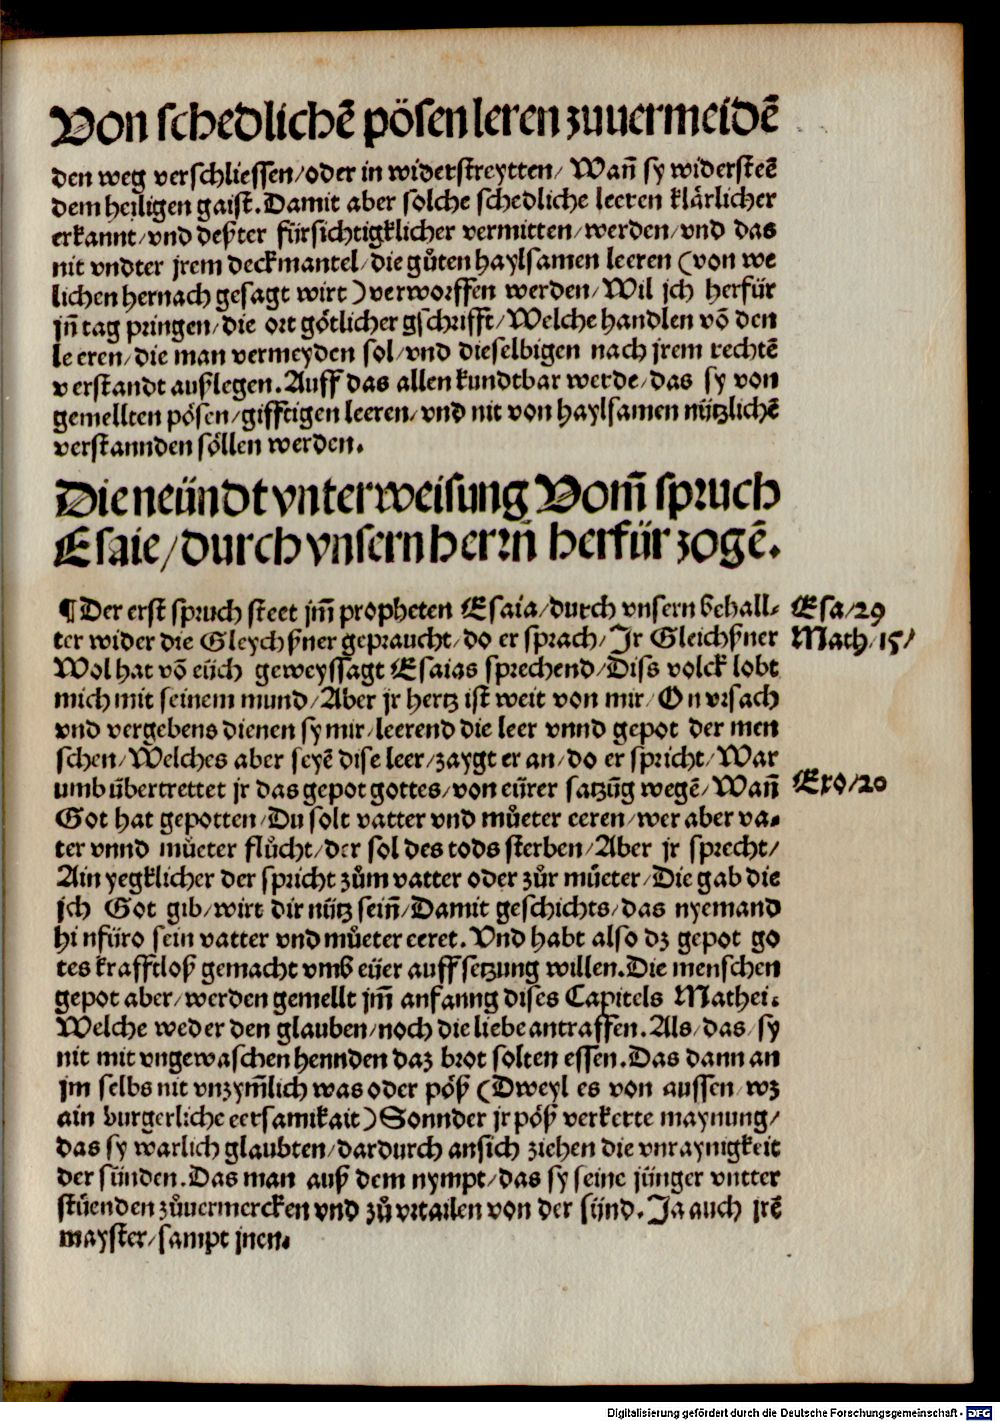 Von schedlichē pösen leren zuuermeidē
den weg verschliessen/oder in widerstreytten/ Wañ sy widersteē
dem heiligen gaist. Damit aber solche schedliche leeren klärlicher
erkannt/vnd deßter fürsichtigklicher vermitten/werden/vnd das
nit vndter jrem deckmantel/die gůten haylsamen leeren (von we
lichen hernach gesagt wirt) verworffen werden/Wil jch herfür
jn̄ tag pringen/die ort götlicher gschrifft/Welche handlen vō den
leeren/die man vermeyden sol/vnd dieselbigen nach jrem rechtē
verstandt außlegen. Auff das allen kundtbar werde/das sy von
gemellten pösen/gifftigen leeren/vnd nit von haylsamen nützlichē
verstannden söllen werden.
Die neündt vnterweisung Vom̄ spruch
Esaie/durch vnsern herrn̄ herfür zogē.
¶Der erst spruch steet jm̄ propheten Esaia/durch vnsern behall-
ter wider die Gleychßner gepraucht/do er sprach/Jr Gleichßner
Wol hat vō eüch geweyssagt Esaias sprechend/Diss volck lobt
mich mit seinem mund/Aber jr hertz ist weit von mir/On vrsach
vnd vergebens dienen sy mir/leerend die leer vnnd gepot der men
schen/Welches aber seyē dise leer/zaygt er an/do er spricht/War
umb übertrettet jr das gepot gottes/von eürer satzūg wegē/Wañ
Got hat gepotten/Du solt vatter vnd můeter eeren/wer aber va-
ter vnnd můeter flůcht/der sol des tods sterben/Aber jr sprecht/
Ain yegklicher der spricht zům vatter oder zůr můeter/Die gab die
jch Got gib/wirt dir nütz sein̄/Damit geschichts/das nyemand
hinfüro sein vatter vnd můeter eeret. Vnd habt also dz gepot go
tes krafftloß gemacht vmb eüer auffsetzung willen. Die menschen
gepot aber/werden gemellt jm̄ anfanng dises Capitels Mathei.
Welche weder den glauben/noch die liebe antraffen. Als/das/sy
nit mit vngewaschen hennden daz brot solten essen. Das dann an
jm selbs nit vnzym̄lich was oder pöß (Dweyl es von aussen/wz
ain burgerliche eersamikait) Sonnder jr pöß verkerte maynung/
das sy warlich glaubten/dardurch ansich ziehen die vnraynigkeit
der sünden. Das man auß dem nympt/das sy seine jünger vntter
stüenden zůuermercken vnd zů vrtailen von der sünd. Ja auch jrē
mayster/sampt jnen.
Esa/29
Math/15/
Exo/20
Digitalisierung gefördert durch die Deutsche Forschungsgemeinschaft - DFG